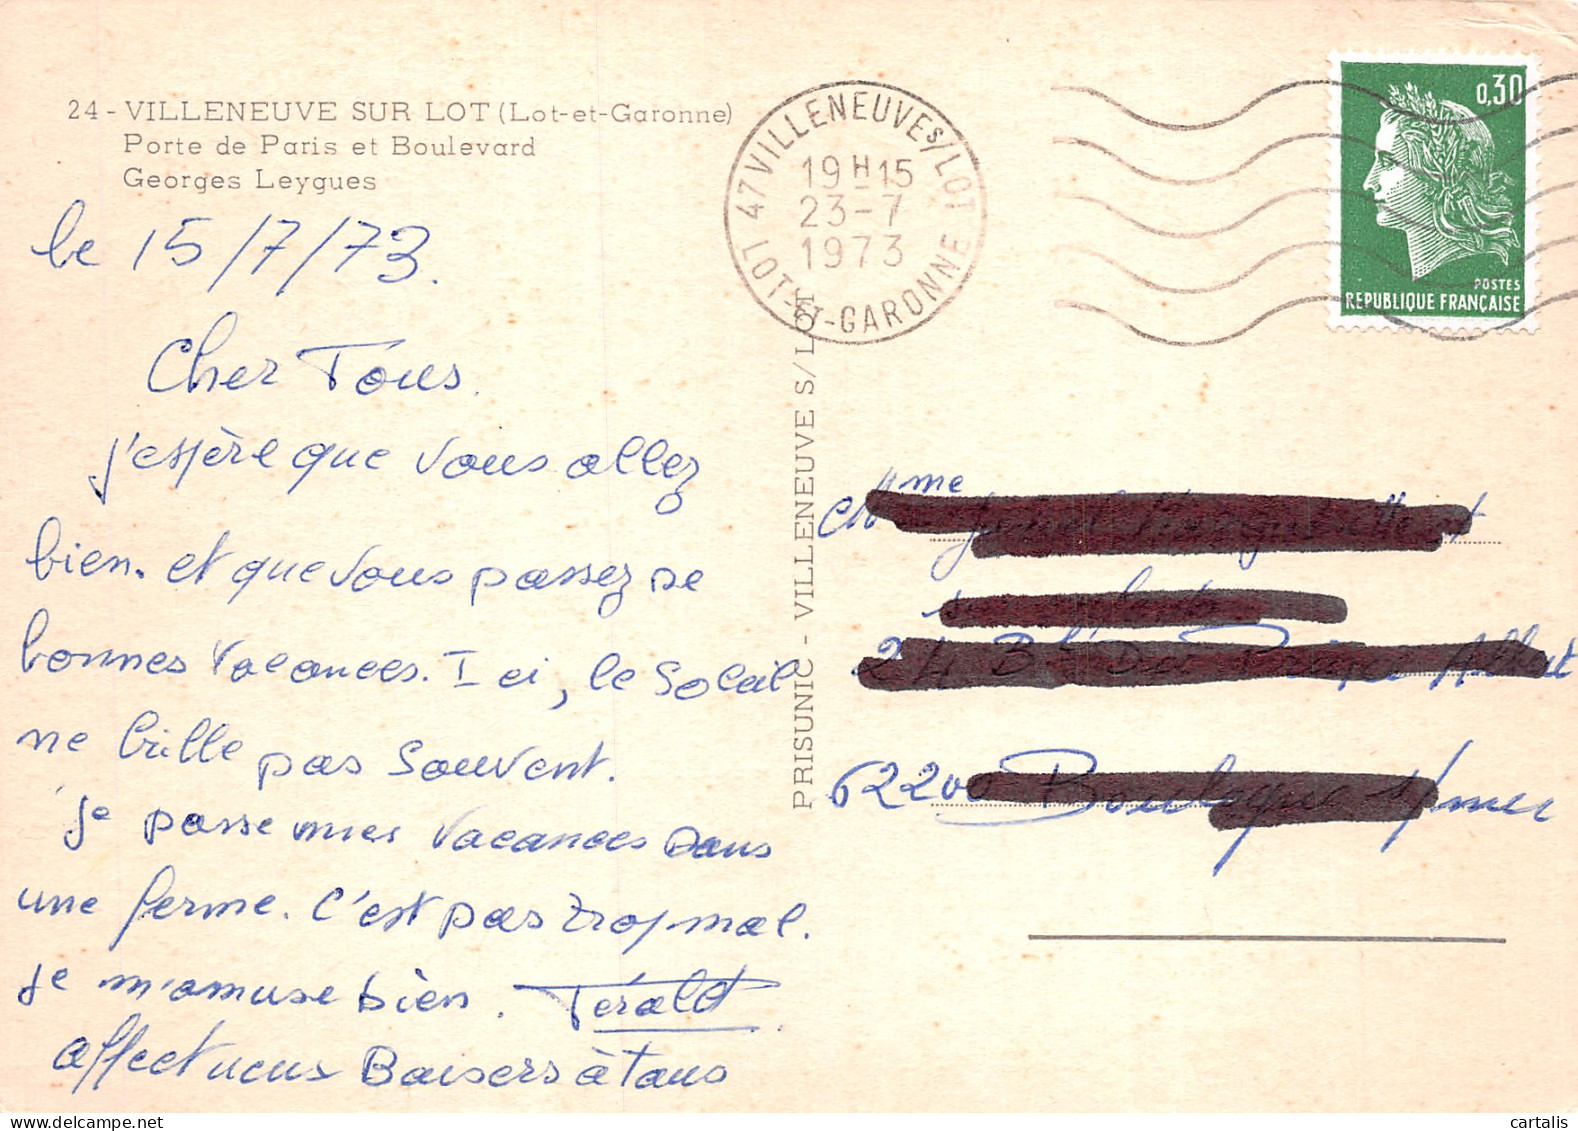 24 - VILLENEUVE SUR LOT (Lot-et-Garonne)
Porte de Paris et Boulevard
Georges Leygues
le 15/7/73.
Cher Tous.
j'espère que vous allez
bien. et que vous passez de
bonnes vacances. Ici, le soleil
ne brille pas souvent.
je passe mes vacances dans
une ferme. C'est pas trop mal.
je m'amuse bien.
affectueux Baisers à tous
PRISUNIC - VILLENEUVE S/ LOT
47 VILLENEUVE S/LOT
19 H 15
23-7
1973
LOT-ET-GARONNE
0,30
POSTES
REPUBLIQUE FRANÇAISE
Mme
24 Bd Du Prince Albert
62200 Boulogne s/mer
cartalis